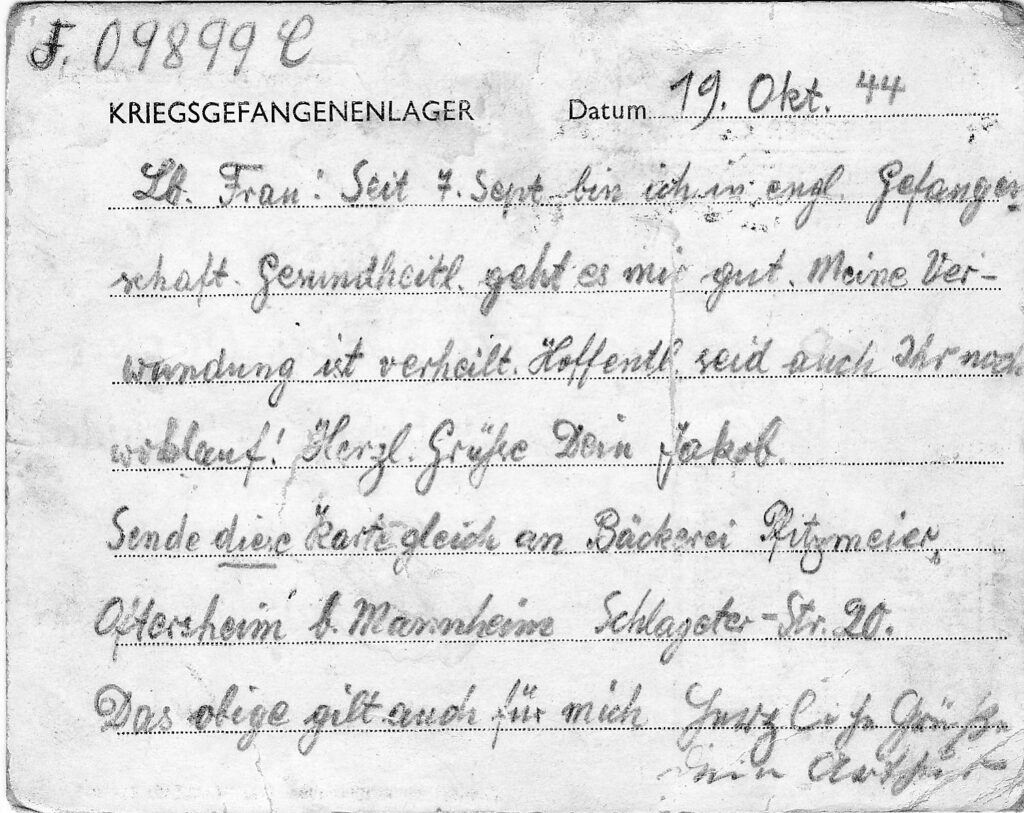 F. 09899 C
KRIEGSGEFANGENENLAGER Datum 19. Okt. 44
Lb. Frau! Seit 7. Sept bin ich in engl. Gefangen-
schaft. Gesundheitl. geht es mir gut. Meine Ver-
wundung ist verheilt. Hoffentl. seid auch Ihr noch
wohlauf! Herzl. Grüße Dein Jakob.
Sende diese Karte gleich an Bäckerei Pfitzmeier,
Oftersheim b. Mannheim Schlageter-Str. 20.
Das obige gilt auch für mich Herzliche Grüße
Dein Arthur